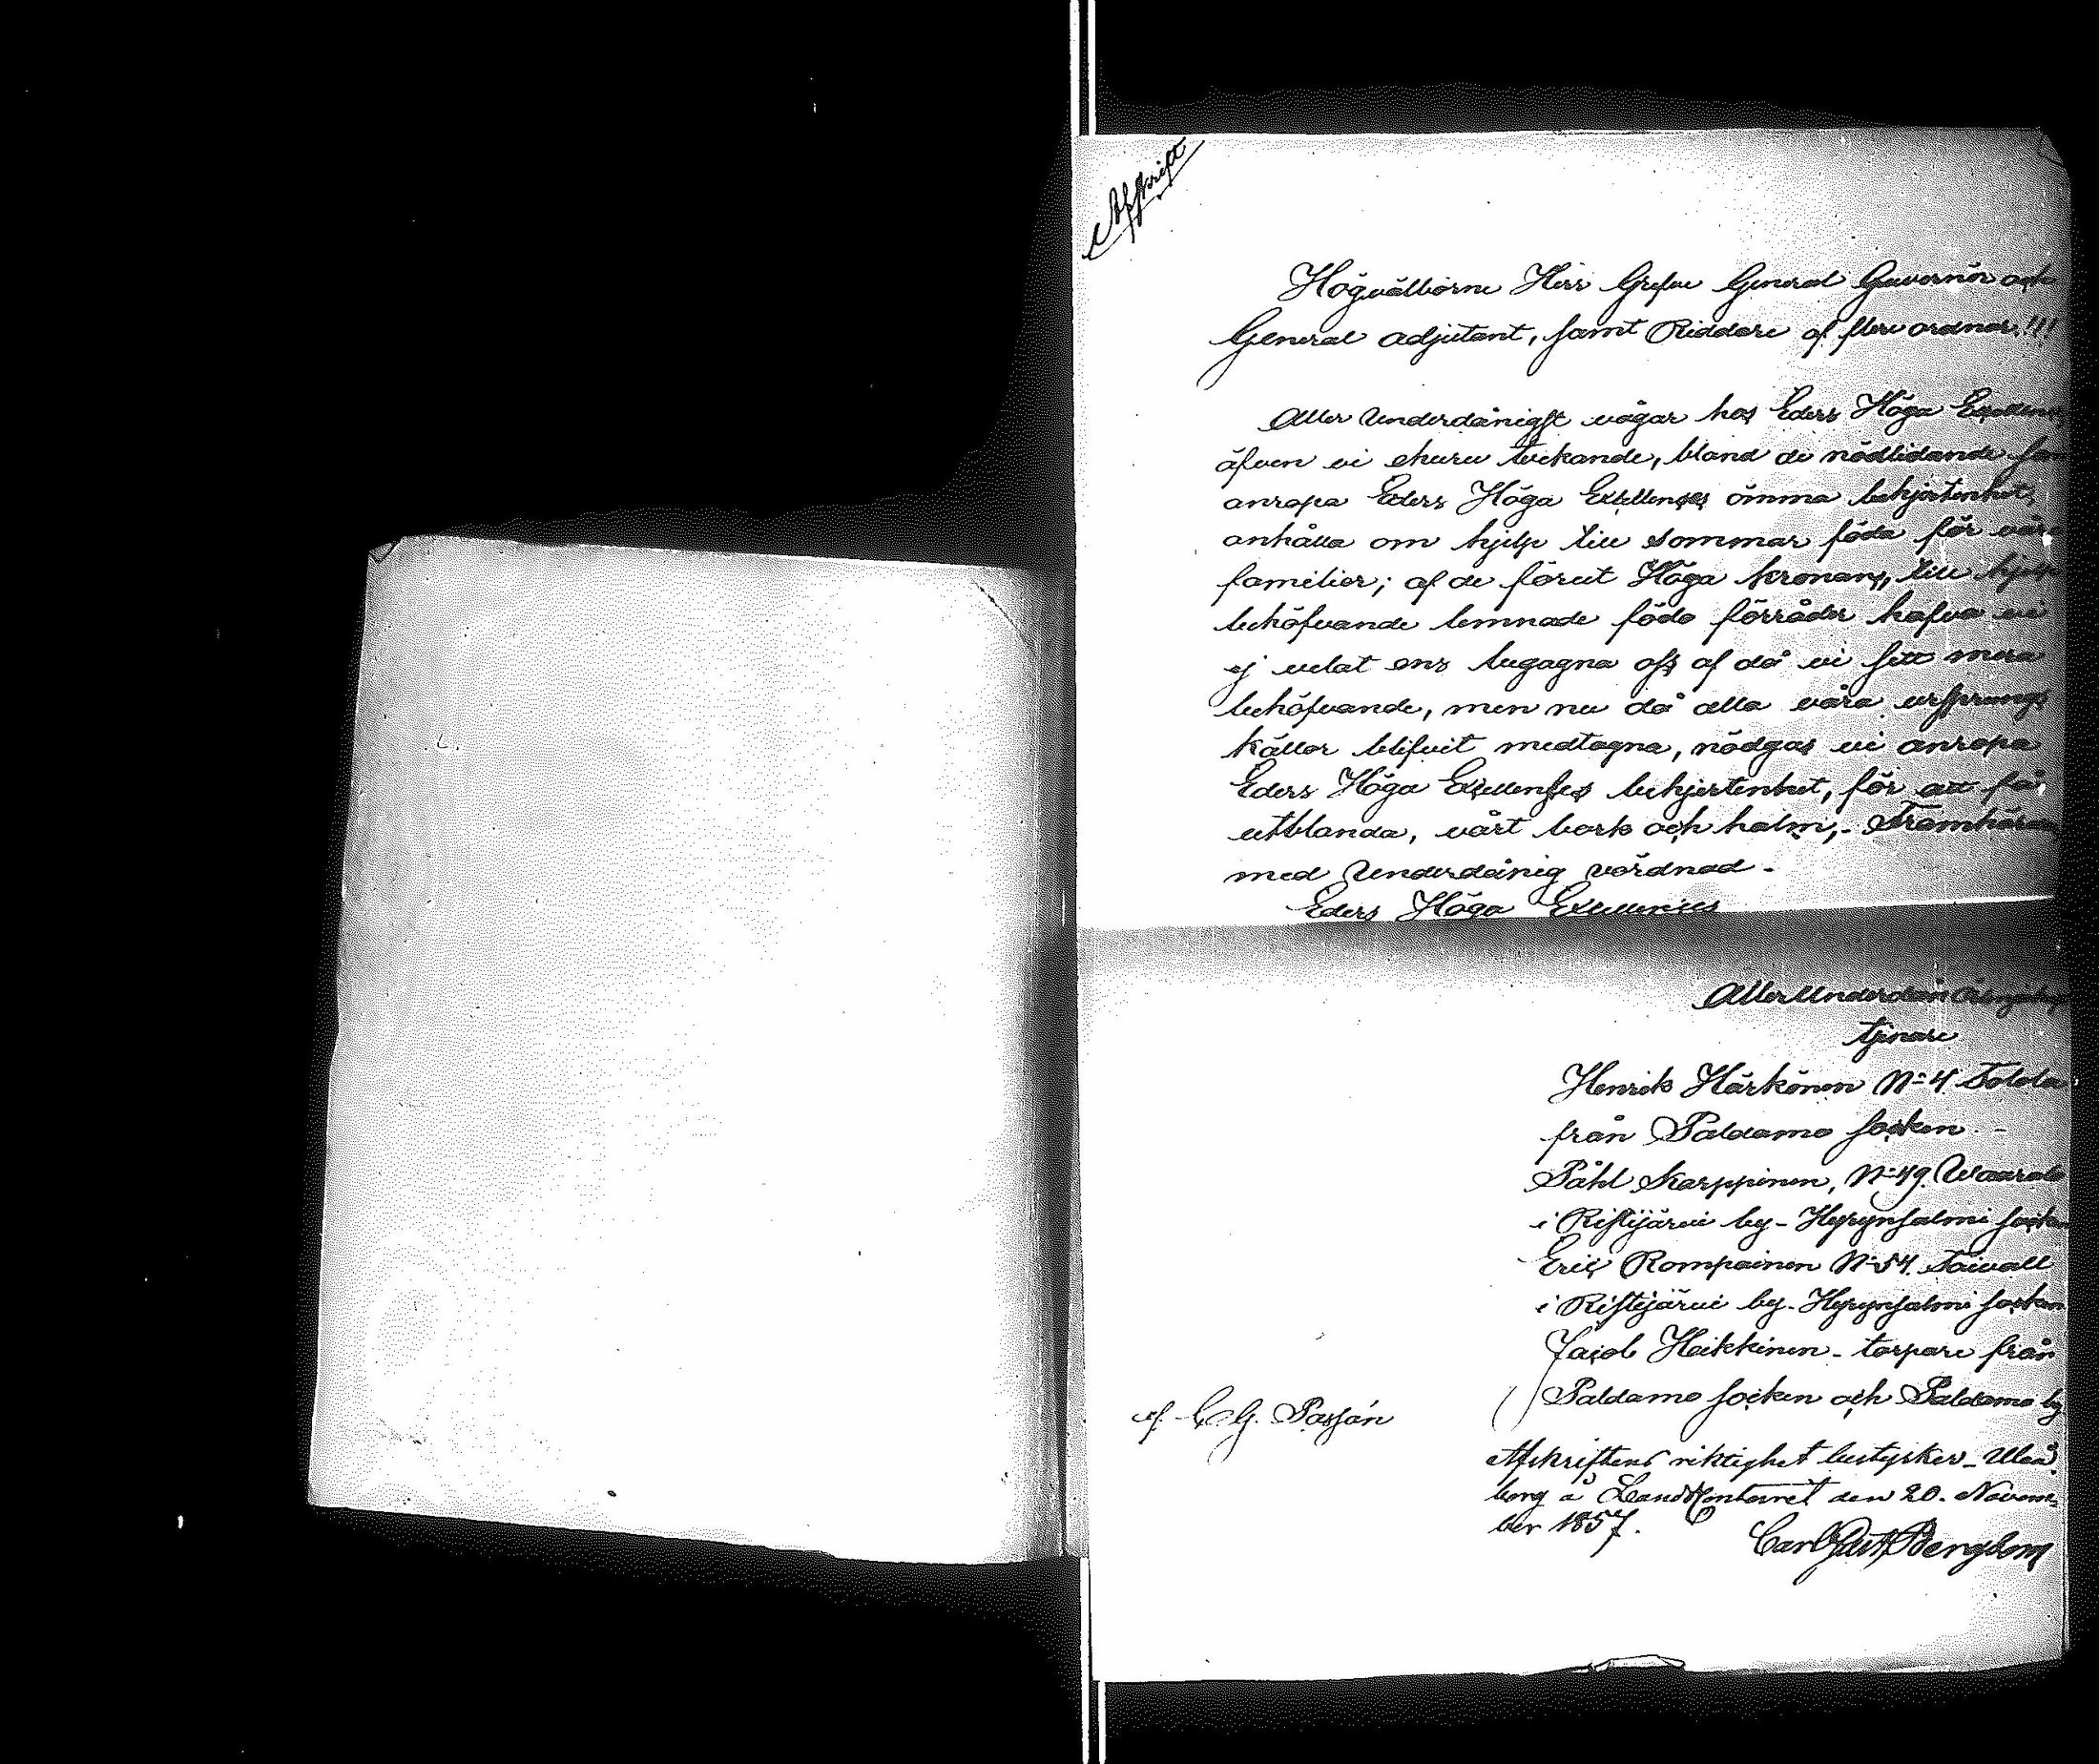 Afskrift
Högvälborne Herr Grefve General Guvernör och
General adjutant, samt Riddare af flere ordnar!!!
Aller Underdånigst vågar hos Eders Höga Exellens
äfven vi ehuru tvekande, bland de nödlidande
anropa Eders Höga Exellenses ömma behjertenhet,
anhålla om hjelp till sommar föda för våra
familier; af de förut Höga kronans, till hjelp
behöfvande lemnade födo förråder hafva vi
ej velat ens begagna oss af då vi sett mera
behöfvande, men nu då alla våra ursprungs
källor blifvit medtagna, nödgas vi anropa
Eders Höga Exellenses behjertenhet, för att få
utblanda, vårt bark och halm,- Framhärdar
med Underdånig vördnad -
Eders Höga Exellenses
Aller Underdån
tjenare
Henrik Härkönen N=4 Tolola
från Paldamo socken. -
Påhl Karppinen, N=49. Waarala
i Ristijärvi by - Hyrynsalmi socken
Eric Rompainen N=54. Taivall
i Ristijärvi by - Hyrynsalmi socken
Jacob Heikkinen - torpare från
Paldamo socken och Paldamo by
af C. G. Passán
Afskriftens riktighet bestyrker - Uleå
borg å LandsContoiret den 20. Novem-
ber 1857.
Carl Gust Bergbom